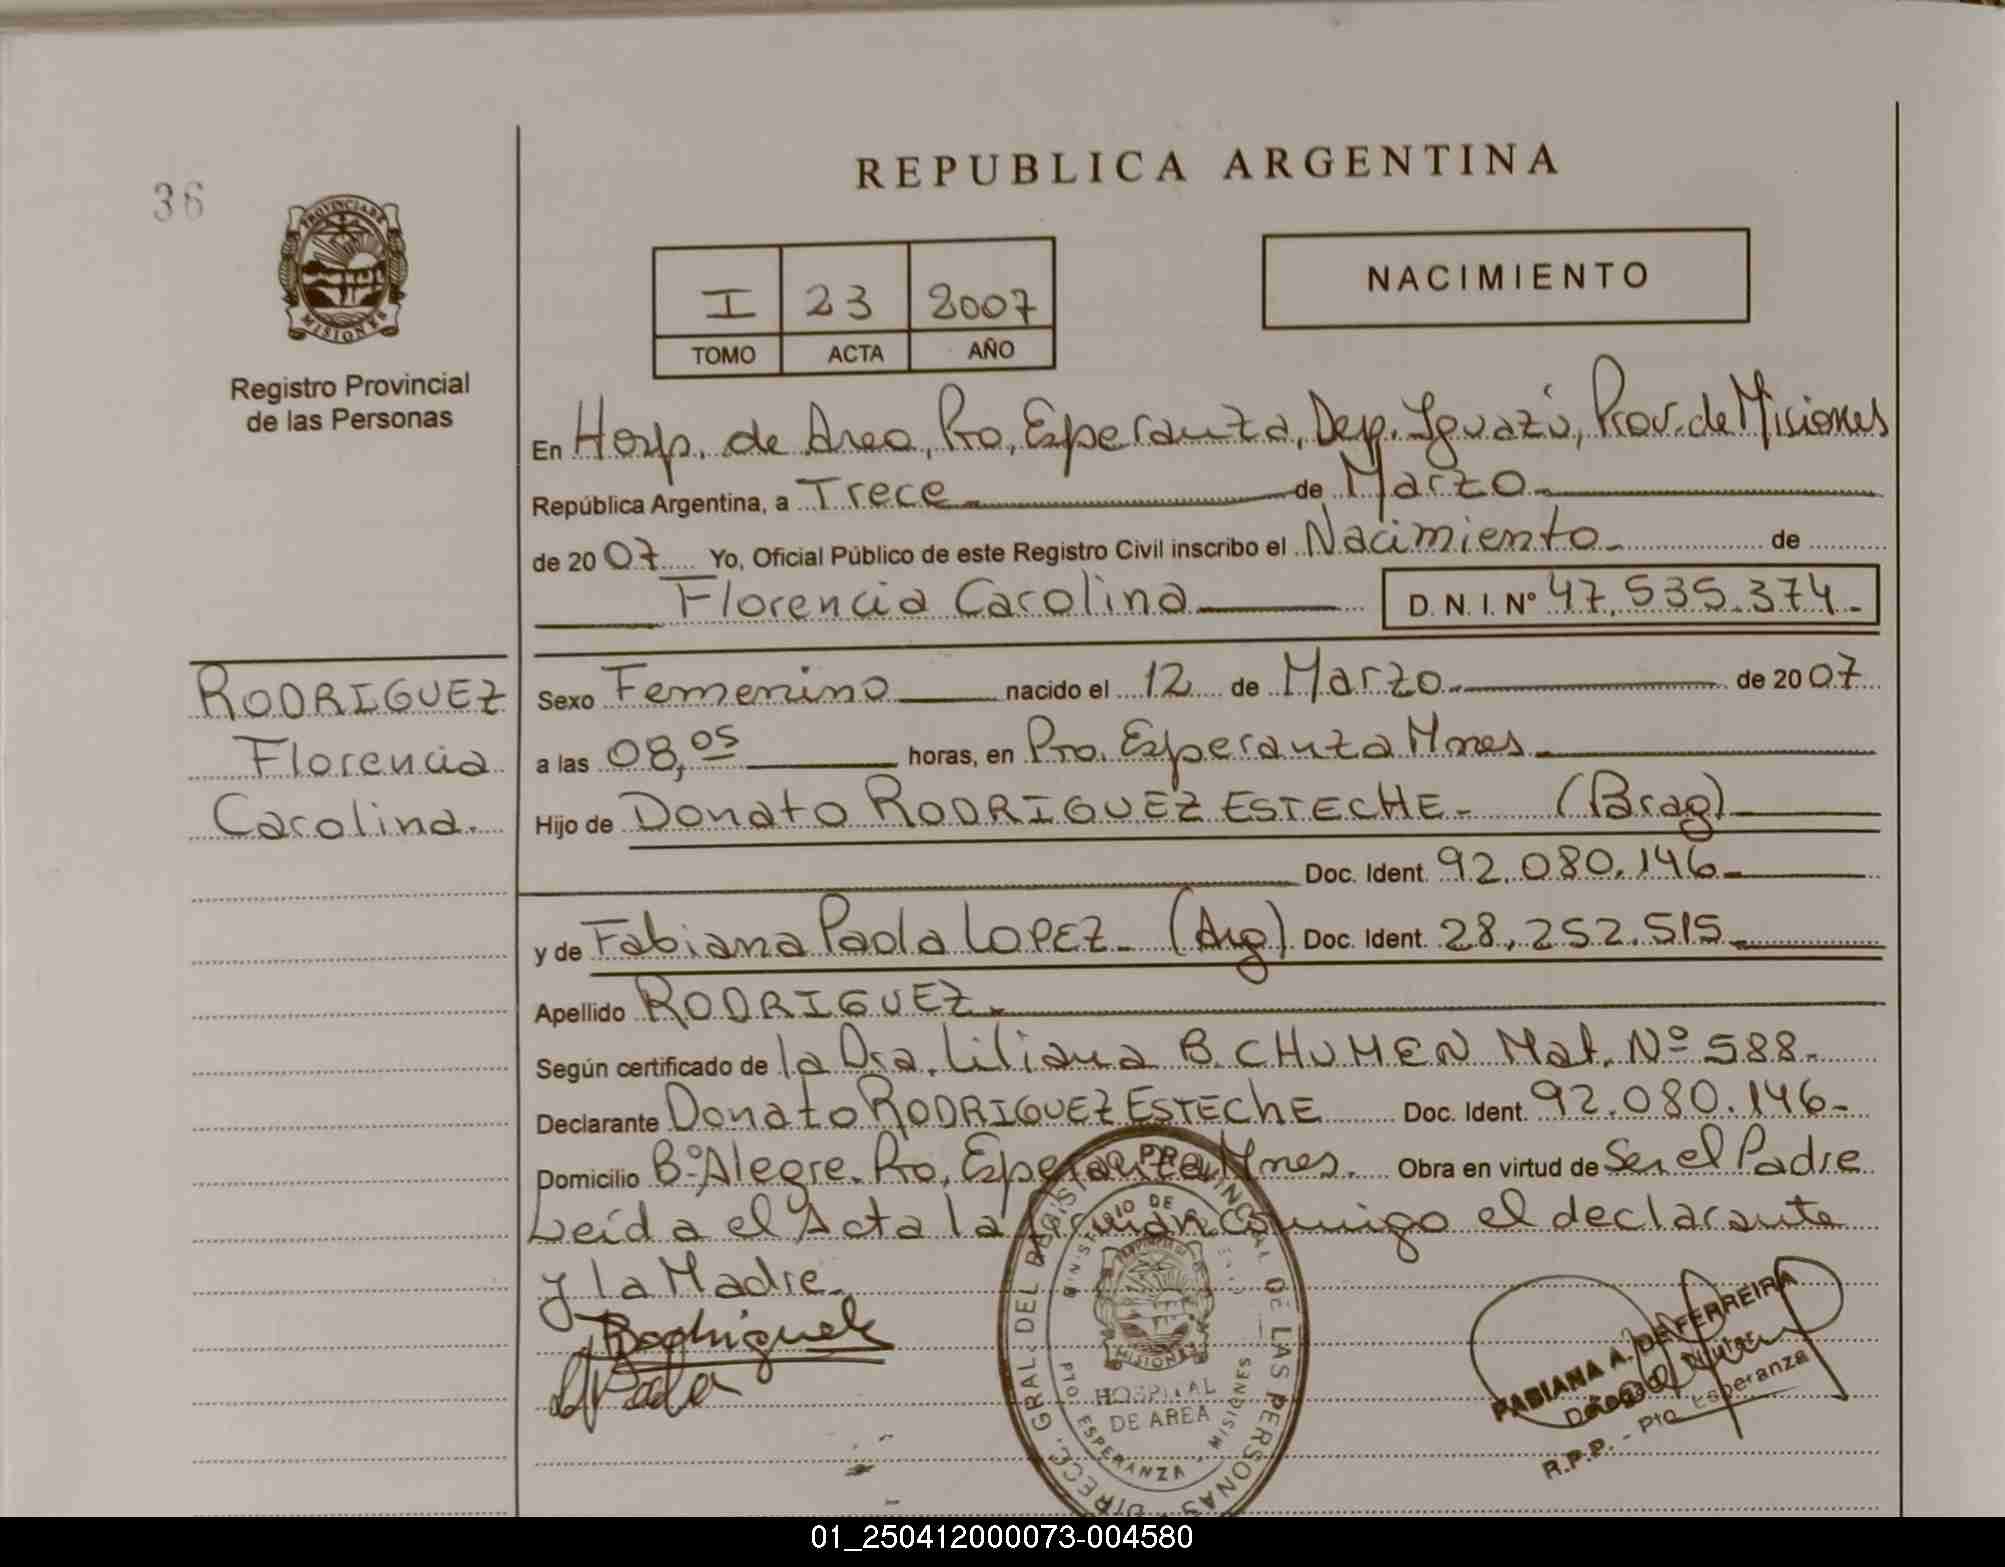 36
PROVINCIA DE
MISIONES
Registro Provincial
de las Personas
REPUBLICA ARGENTINA
I 23 2007
TOMO ACTA AÑO
NACIMIENTO
En Hosp. de Area, Pto, Esperanza, Dep. Iguazú, Prov. de Misiones
República Argentina, a Trece de Marzo
de 2007 Yo, Oficial Público de este Registro Civil inscribo el Nacimiento de
Florencia Carolina D.N.I. Nº 47.535.374.-
RODRIGUEZ
Florencia
Carolina.
Sexo Femenino nacido el 12 de Marzo de 2007
a las 08,05 horas, en Pto. Esperanza Mnes
Hijo de Donato RODRIGUEZ ESTECHE- (Parag)
Doc. Ident. 92.080.146
y de Fabiana Paola LOPEZ- (Arg) Doc. Ident. 28.252.515
Apellido RODRIGUEZ
Según certificado de la Dra. Liliana B. CHUMEN Mat. Nº 588-
Declarante Donato RODRIGUEZ ESTECHE Doc. Ident. 92.080.146-
Domicilio Bº Alegre. Pto, Esperanza Mnes. Obra en virtud de Ser el Padre
Leída el Acta la firman conmigo el declarante
y la Madre
Rodriguez
Paola
DIRECC. GRAL. DEL REGISTRO PROVINCIAL DE LAS PERSONAS
MINISTERIO DE
MISIONES
HOSPITAL
DE AREA
PTO ESPERANZA - MISIONES
FABIANA A. DE FERREIRA
R.P.P. - Pto Esperanza
01_250412000073-004580